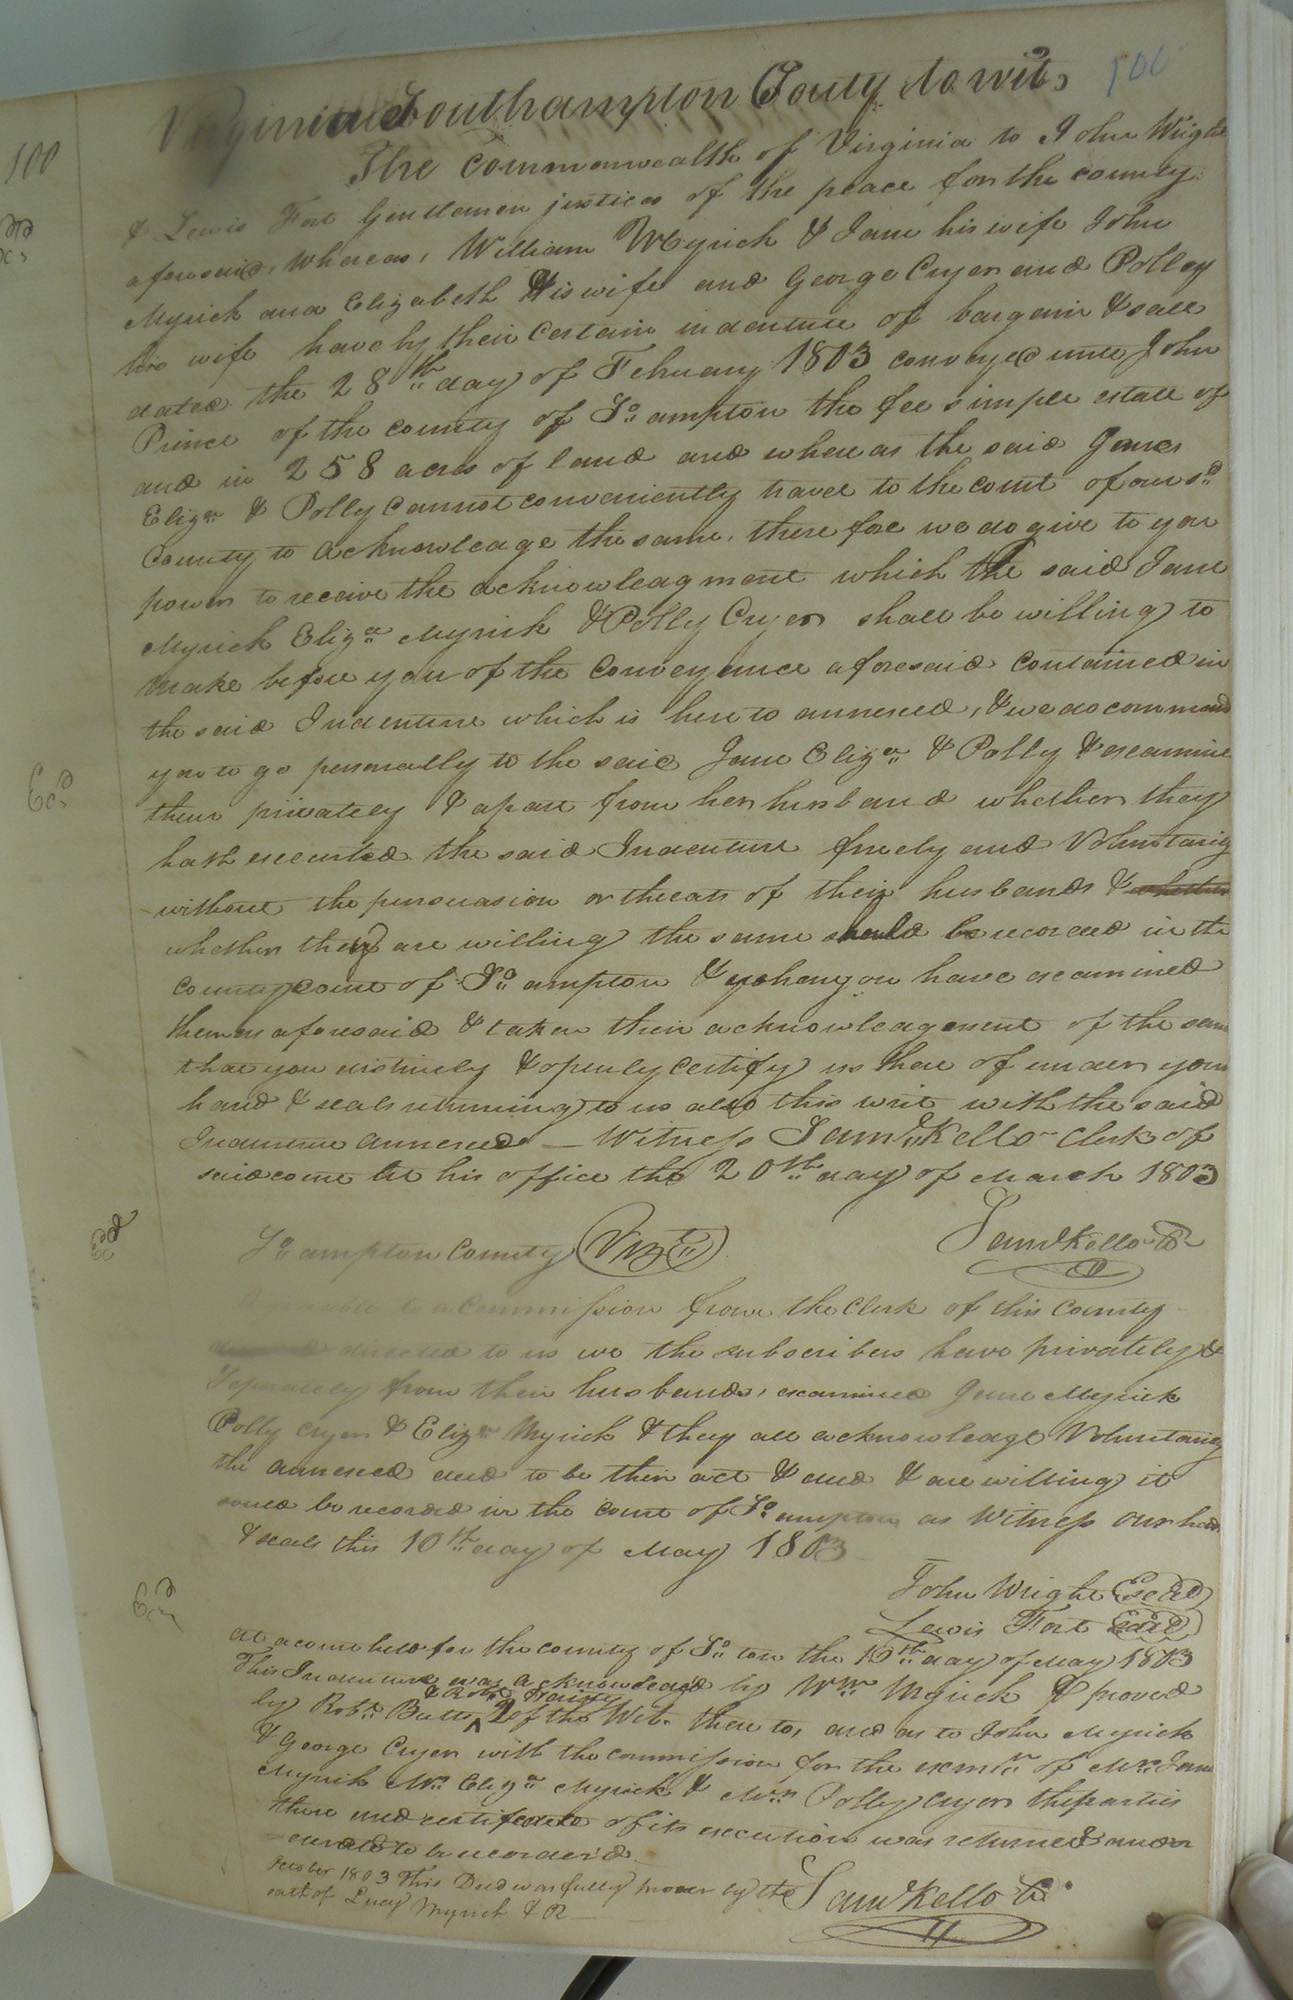 100
Virginia Southampton Couty to wit,
The Commonwealth of Virginia to John Wright
& Lewis Fort Gentlemen justices of the peace for the county
aforesaid, Whereas, William Myrick & Jane his wife John
Myrick and Elizabeth His wife and George Cryer and Polley
his wife have by their certain indenture of bargain & sale
dated the 28th day of February 1803 conveyed unto John
Prince of the county of So ampton the fee simple estate of
and in 258 acres of land and whereas the said Janes
Eliza & Polly Cannot conveniently travel to the court of our sd
County to acknowledge the same, there fore we do give to you
power to receive the acknowleagment which the said Jane
Myrick Eliza Myrick & Polly Cryer shall be willing to
make before you of the Conveyance aforesaid contained in
the said Indenture which is here to annexed, & we do command
you to go personally to the said Jane Eliza & Polly & examine
them privately & apart from her husband whether they
hath executed the said Indenture freely and Voluntarily
without the persuasion or threats of their husbands & whether
whether they are willing the same should be recorded in the
County court of So ampton & when you have examined
them as aforesaid & taken their acknowleagement of the same
that you distinctly & openly certify us there of under your
hand & seals returning to us also this writ with the said
Indenture annexed — Witness Saml Kello Clerk of
said court At his office the 20th day of March 1803
Saml Kello CC
So ampton County Vizt
to a Commission from the Clerk of this County
directed to us we the subscribers have privately &
Seperately from their husbands, examined Jane Myrick
Polly Cryer & Eliza Myrick & they all acknowledge Voluntarily
the annexed deed to be their act & deed & are willing it
soued be recorded in the court of So ampton as Witness our hands
& seals this 10th day of May 1803
John Wright Seal
Lewis Fort Seal
at a court held for the county of So ton the 10th day of May 1803
This Indenture was acknowledged by Wm Myrick & proved
& Robt
by Robt Butts 2 of the Wit. there to, and as to John Myrick
& George Cryer with the commission for the exmtn of Mrs Jane
Myrick Mrs Eliza Myrick & Mrs Polly Cryer the parties
there and certificate of its execution was returned and or
dered to be recorded
Saml Kello CC
October 1803 This Deed was fully proven by the
oath of Lucy Myrick & R